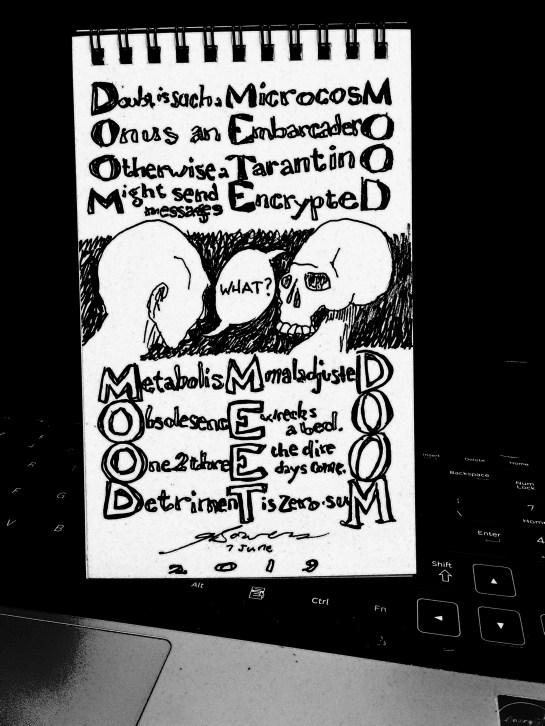 Doubt is such a MicrocosM
Onus an EmbarcaderO
Otherwise a TarantinO
Might send EncrypteD
messages
WHAT?
MetabolisM maladjusteD
ObsolesencE wrecks
a bed. O
One 2 threE the dire
days come. O
DetrimenT is Zero-suM
GBowers
7 June
2019
Insert Delete Home
Backspace
Num
Lock
7
Home
G
F
V B
Enter 4
Shift
Alt Ctrl Fn